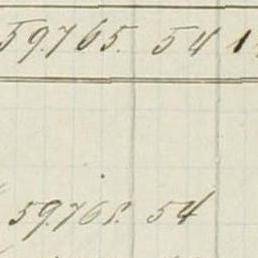 59.765. 54 1
59.765. 54